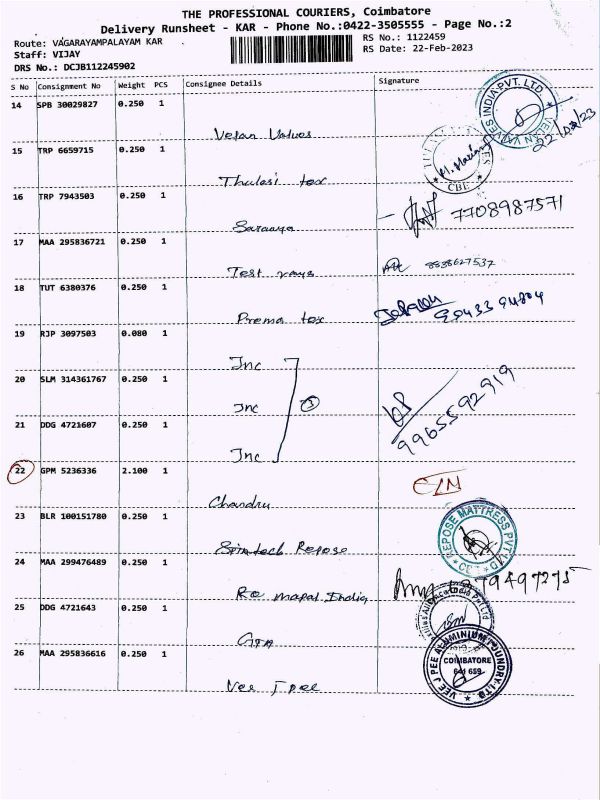 THE PROFESSIONAL COURIERS, Coimbatore
Delivery Runsheet - KAR - Phone No.:0422-3505555 - Page No.:2
Route: VAGARAYAMPALAYAM KAR
RS No.: 1122459
Staff: VIJAY
RS Date: 22-Feb-2023
DRS No.: DCJB112245902
S No Consignment No Weight PCS Consignee Details Signature
14 SPB 30029827 0.250 1
Velan Valves
VELAN VALVES INDIA PVT. LTD
22/02/23
15 TRP 6659715 0.250 1
Thulasi tex
CBE
16 TRP 7943503 0.250 1
Saranya
7708987571
17 MAA 295836721 0.250 1
Test rays
8838627537
18 TUT 6380376 0.250 1
Prema tex
19 RJP 3097503 0.080 1
Inc
20 SLM 314361767 0.250 1
Inc
3
21 DDG 4721607 0.250 1
Inc
9965592919
22 GPM 5236336 2.100 1
Chandru
23 BLR 100151780 0.250 1
Spintech Repose
REPOSE MATTRESS PVT LTD
CBE
24 MAA 299476489 0.250 1
Ro mapal India
25 DDG 4721643 0.250 1
26 MAA 295836616 0.250 1
Vee J pee
VEE J PEE ALUMINIUM FOUNDRY-LTD
COIMBATORE
641 659